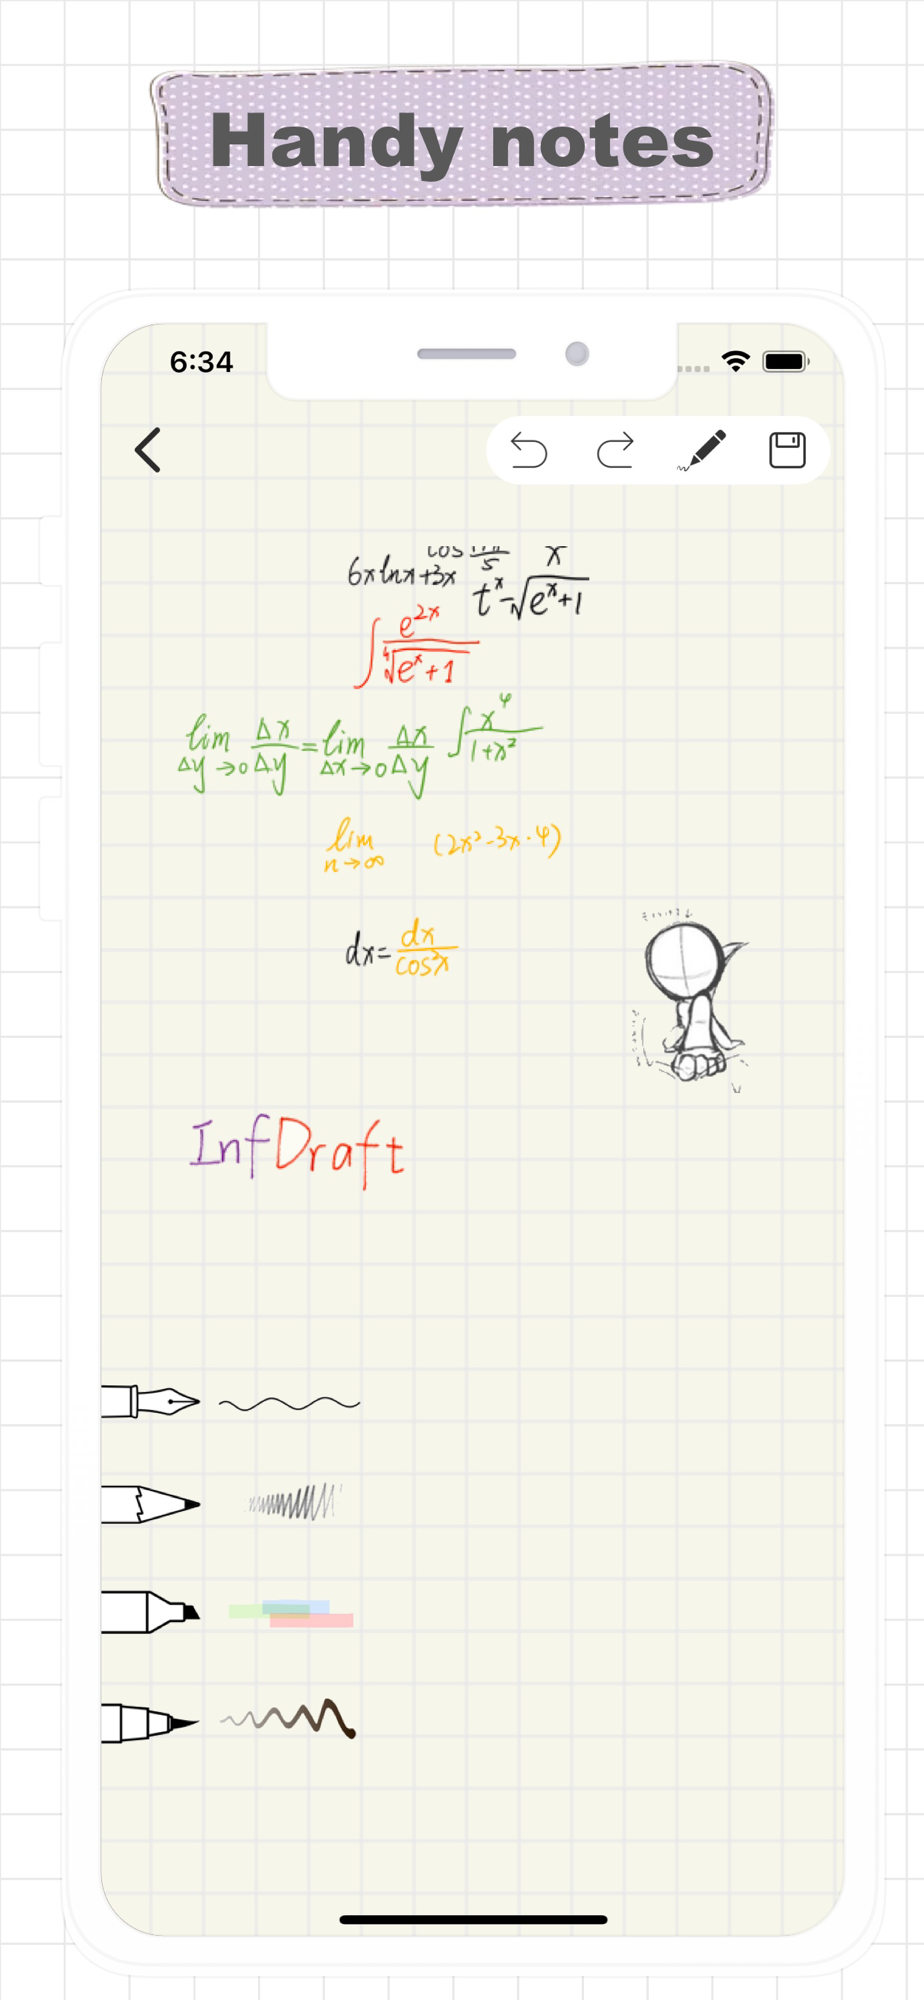 Handy notes
6:34
cos
5
6x ln x+3x
x
t^x=√(e^x+1)
∫ e^2x / ∜(e^x+1)
lim Δy→0 Δx/Δy = lim Δx→0 Δx/Δy ∫ x^4/(1+x^2)
lim n→∞ (2x²-3x·4)
dx= dx/cos²x
InfDraft